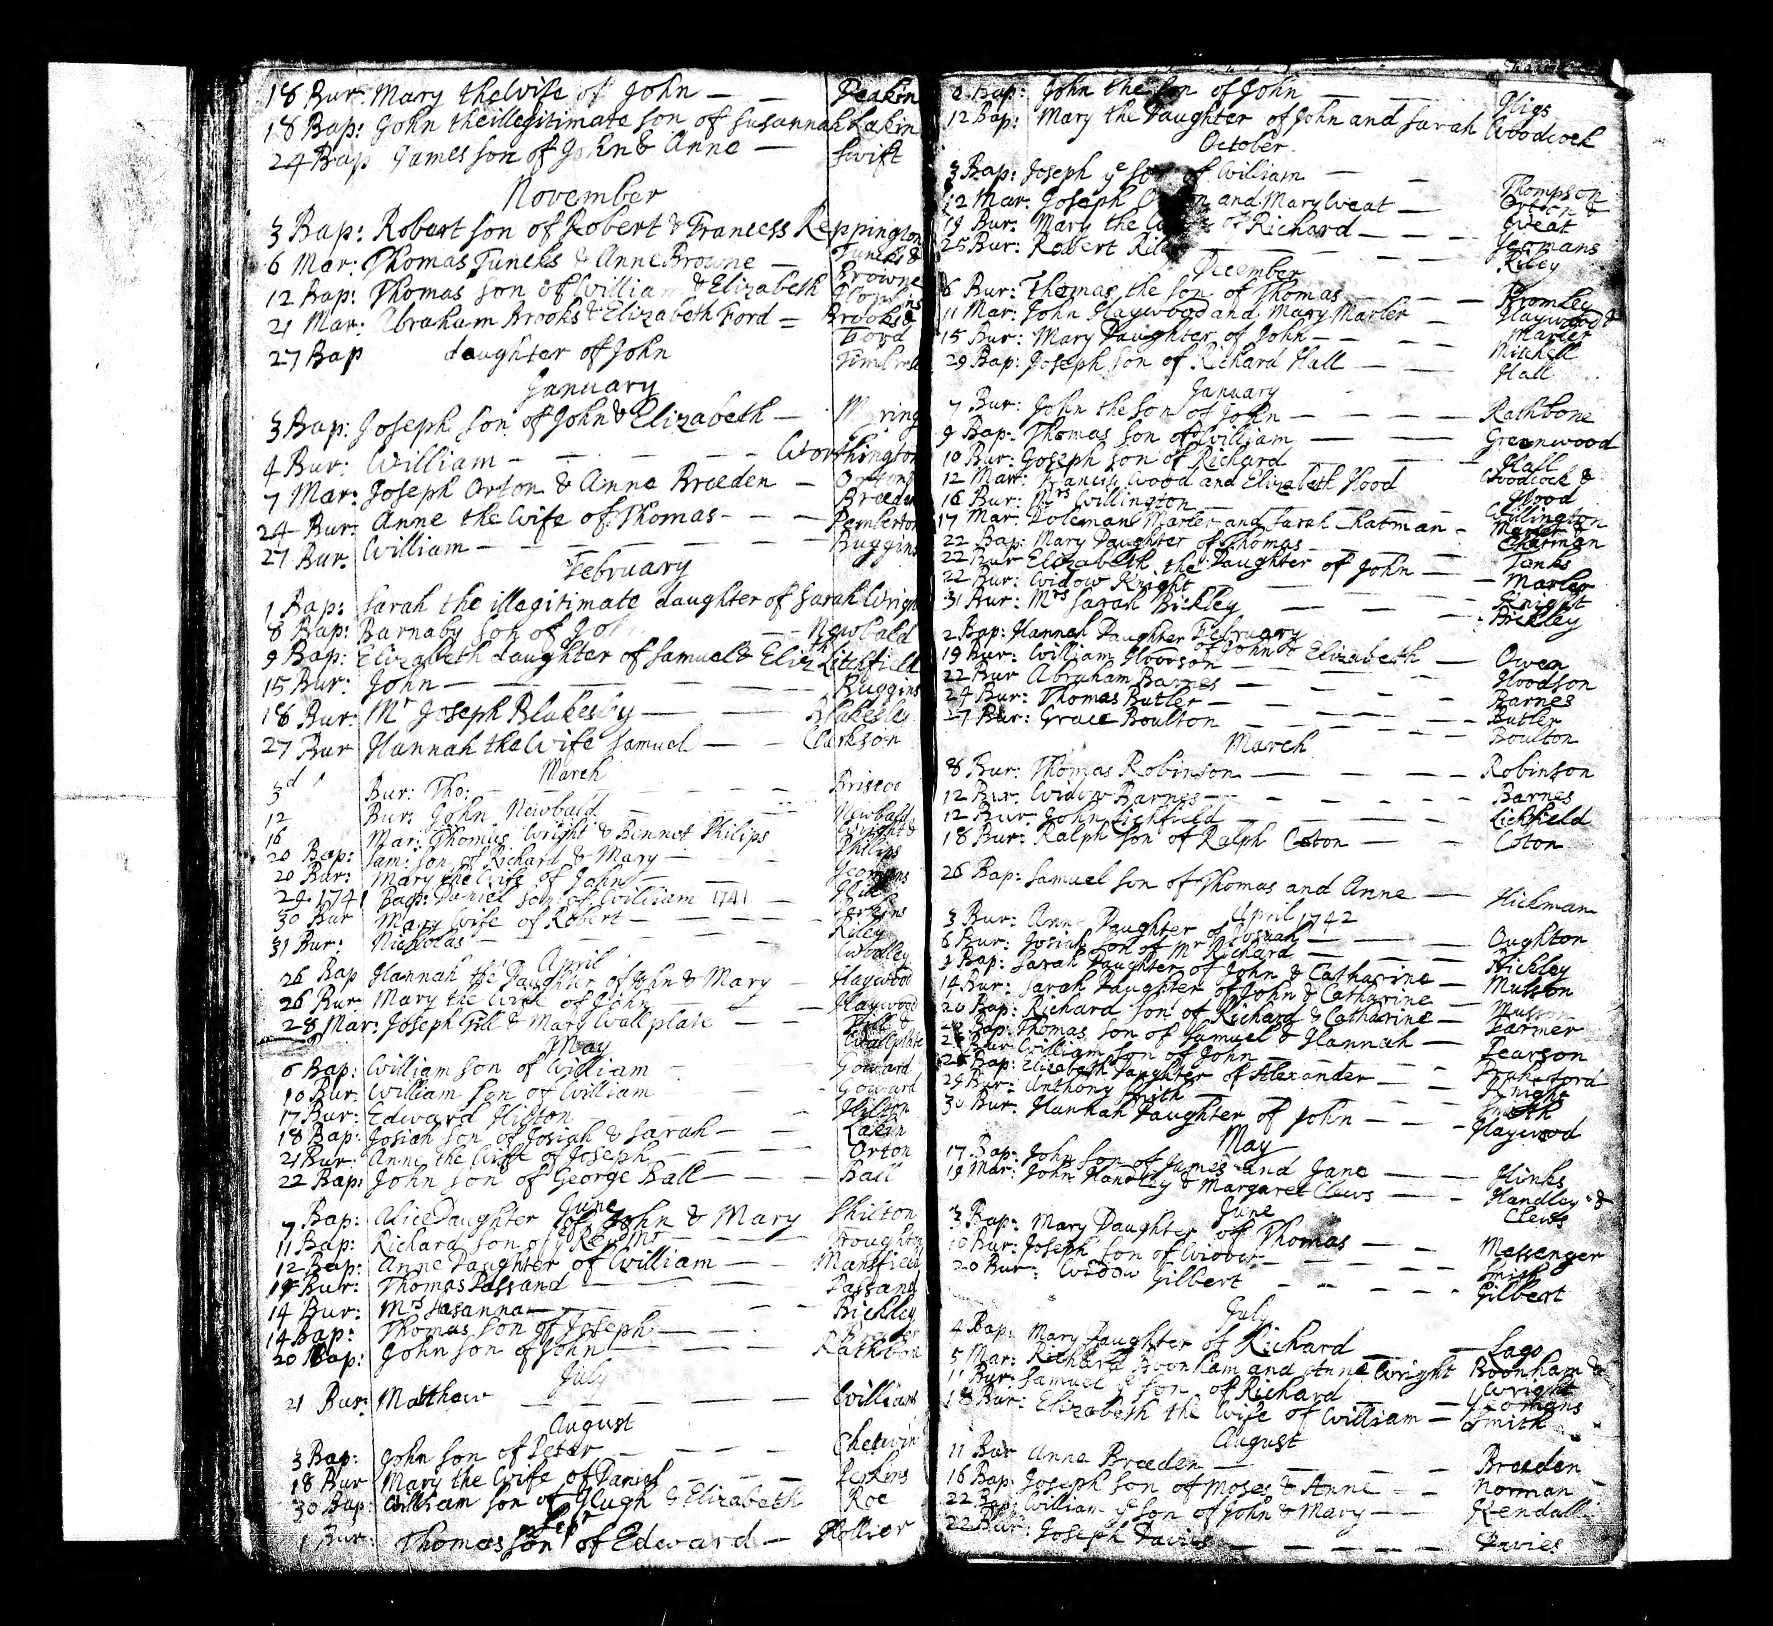 18 Bur: Mary the Wife of John — — Deakin
18 Bap: John the illegitimate son of Susannah Lakin
24 Bap James son of John & Anne — Swift
November
3 Bap: Robart son of Robert & Francess Reppington
6 Mar: Thomas Juncks & Anne Browne — Juncks &
Browne
12 Bap: Thomas son of William & Elizabeth
21 Mar: Abraham Brooks & Elizabeth Ford = Brooks &
Ford
27 Bap daughter of John
January
3 Bap: Joseph son of John & Elizabeth —
4 Bur: William — — — — — Worthington
7 Mar: Joseph Orton & Anne Breeden — Orton &
Breeden
24 Bur: Anne the Wife of Thomas — — — Pemberton
27 Bur. William — — — — — — Buggins
February
1 Bap: Sarah the illegitimate daughter of Sarah Wrig
8 Bap: Barnaby son of Joh — — Newbald
9 Bap: Elizabeth daughter of Samuel & Eliz Litchfield
15 Bur: John — — — — — — Buggins
18 Bur: Mr Joseph Blakesby — — — Blakesley
27 Bur Hannah the Wife Samuel — — Clarkson
March
3d Bur: Tho: — — — — — Briscoo
12 Bur: John Newbald — — Newbald
16 Mar: Thomas Wright & Bennet Philips Wright &
Philips
20 Bap: Sam: son of Richard & Mary — — — Yeomans
20 Bur: Mary the Wife of John — —
29 1741 Bap: Daniel son of William 1741 —
30 Bur Mary Wife of Robert — — — — Riley
31 Bur: Nicholas — — — — — Woodley
April
26 Bap Hannah the Daughter of John & Mary — Haywood
26 Bur Mary the Wife of John — — — Haywood
28 Mar: Joseph Till & Mary Wallplate — — Till &
Wallplate
May
6 Bap: William son of William — Goward
10 Bur. William son of William — — Goward
17 Bur: Edward Hilton — — — Hilton
18 Bap: Josiah son of Josiah & Sarah — — — Lakin
21 Bur: Anne the Wife of Joseph — — — — Orton
22 Bap: John son of George Ball — — — Ball
June
7 Bap: Alice Daughter of John & Mary Shilton
11 Bap: Richard son of ye Revd Mr — — — Broughton
12 Bap: Anne Daughter of William — — Mansfield
14 Bur: Thomas Passand — — — Passand
14 Bur: Mrs Susanna — — — — Bickley
14 Bap: Thomas son of Joseph — — —
20 Bap: John son of John — — — — Rathbon
July
21 Bur: Matthew — — — — — William
August
3 Bap: John son of Peter — — — — Chetwin
18 Bur Mary the Wife of Daniel — — — Perkins
30 Bap: William son of Hugh & Elizabeth Roe
Sepr
1 Bur: Thomas son of Edward — Hollier
Bap: John the Son of John — — Gligs
12 Bap: Mary the Daughter of John and Sarah Woodcock
October
3 Bap: Joseph ye son of William — — Thompson
12 Mar: Joseph Orton and Mary Weat — Orton &
Weat
19 Bur: Mary the Wife of Richard — — — Yeomans
25 Bur: Robert Riley — — — — Riley
December
6 Bur: Thomas the son of Thomas — — — Bromley
11 Mar: John Haywood and Mary Marler — Haywood &
Marler
15 Bur: Mary Daughter of John — — — — Mitchell
29 Bap: Joseph son of Richard Hall — — Hall
January
7 Bur: John the son of John — — — — Rathbone
9 Bap: Thomas son of William — — — Greenwood
10 Bur: Joseph son of Richard — — — Hall
12 Mar: Francis Wood and Elizabeth Hood Woodcock &
Hood
16 Bur: Mrs Willington — — — — Willington
17 Mar: Doleman Marler and Sarah Chatman — Marler &
Chatman
22 Bap: Mary Daughter of Thomas — — — — Tonks
22 Bur Elizabeth the Daughter of John — — Marler
22 Bur: Widow Knight — — — — Knight
31 Bur: Mrs Sarah Bickley — — — Bickley
February
2 Bap: Hannah Daughter of John & Elizabeth — Owen
19 Bur: William Hoodson — — — — Hoodson
22 Bur Abraham Barnes — — — — Barnes
24 Bur: Thomas Butler — — — — Butler
27 Bur: Grace Boulton — — — — — Boulton
March
8 Bur: Thomas Robinson — — — — Robinson
12 Bur: Widow Barnes — — — — Barnes
12 Bur: John Lichfield — — — — Lichfield
18 Bur: Ralph son of Ralph Coton — — Coton
26 Bap: Samuel son of Thomas and Anne — Hickman
April 1742
3 Bur: Anne Daughter of Josuah — — — Oughton
6 Bur: Josiah son of Mr Richard — — — Bickley
9 Bap: Sarah Daughter of John & Catharine — Musson
14 Bur: Sarah Daughter of John & Catharine — Musson
20 Bap: Richard son of Richard & Catharine — Farmer
Bap: Thomas son of Samuel & Hannah — Pearson
Bur: William son of John — — — Brakeford
Bap: Elizabeth Daughter of Alexander — — Knight
29 Bur: Anthony Smith — — — — Smith
30 Bur: Hannah Daughter of John — — — Haywood
May
17 Bap: John son of James and Jane — — — Hinks
19 Mar: John Handley & Margaret Clews — — Handley &
Clews
June
3 Bap: Mary Daughter of Thomas — — — Messenger
10 Bur: Joseph son of Widow — — — Smith
20 Bur: Widow Gilbert — — — — Gilbert
July
4 Bap: Mary Daughter of Richard — — Lago
5 Mar: Richard Boonham and Anne Wright Boonham &
Wright
11 Bur: Samuel ye son of Richard — — — Yeomans
18 Bur: Elizabeth the Wife of William — Smith
August
11 Bur Anne Breeden — — — — Breeden
16 Bap: Joseph son of Moses & Anne — — Norman
22 Bap: William ye son of John & Mary — — Kendall
22 Bur: Joseph Davies — — — — — Davies